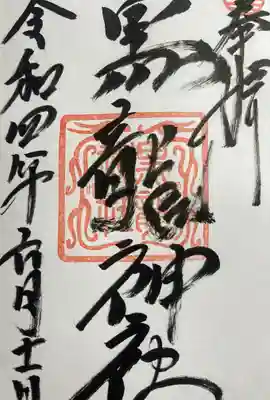 奉拝
黒龍神社
令和四年六月十二日